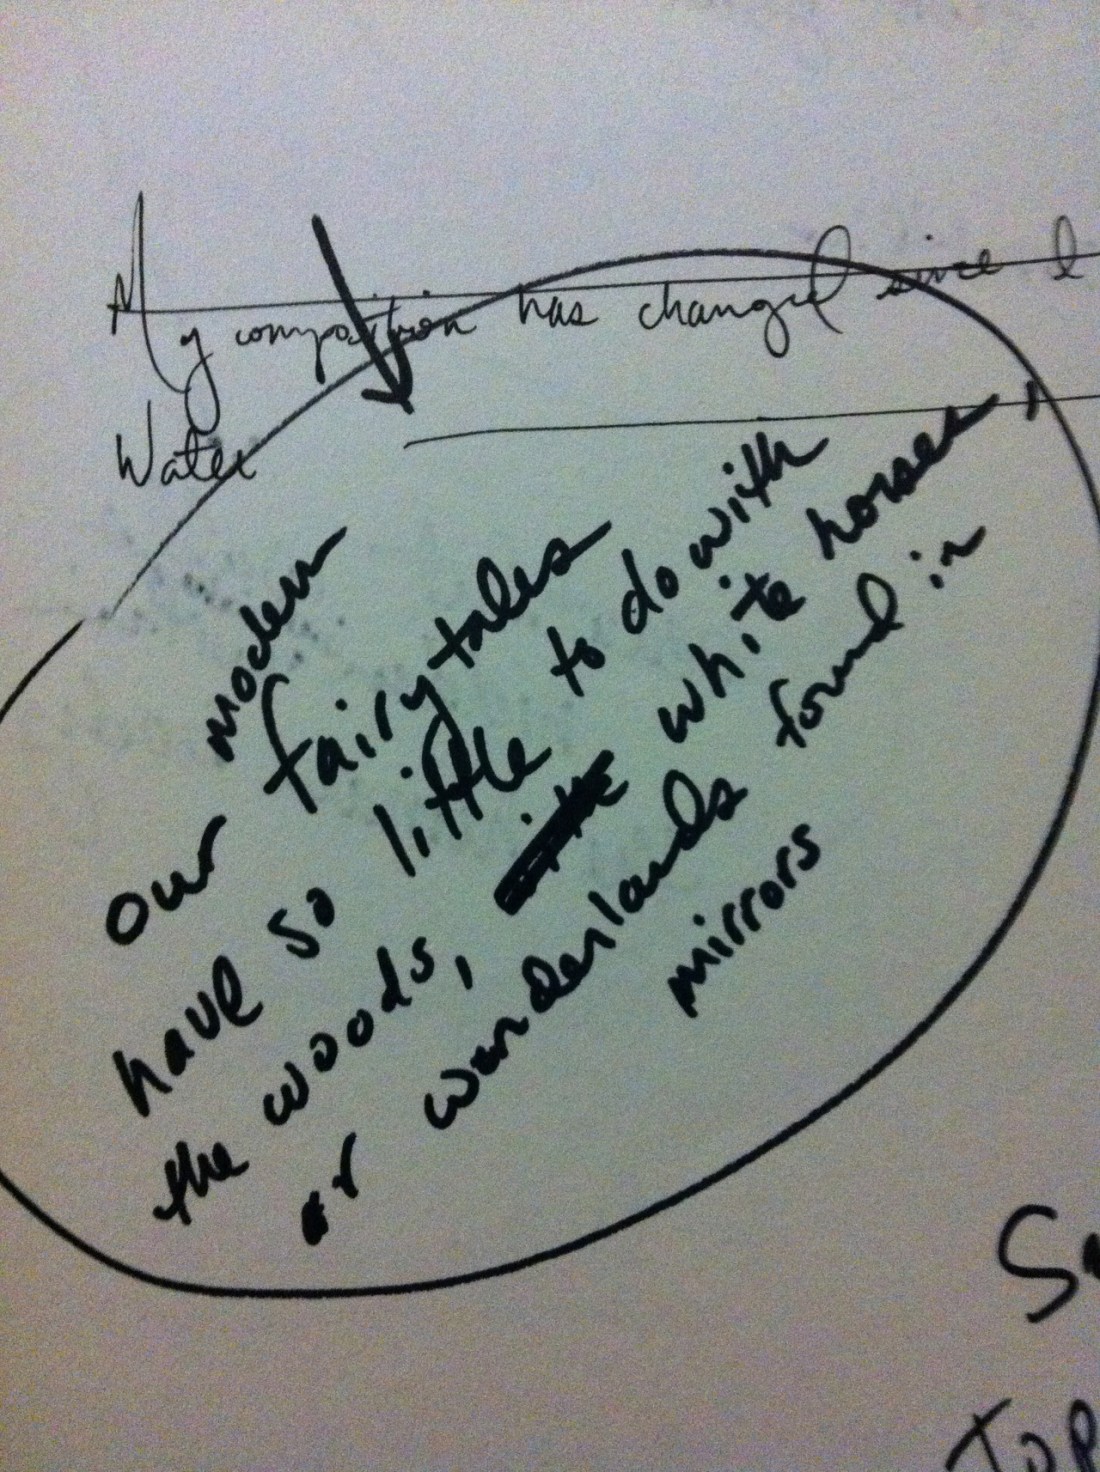 My composition has changed since I
Water
modern
our fairytales
have so little to do with
the woods, white horses,
or wonderlands found in
mirrors